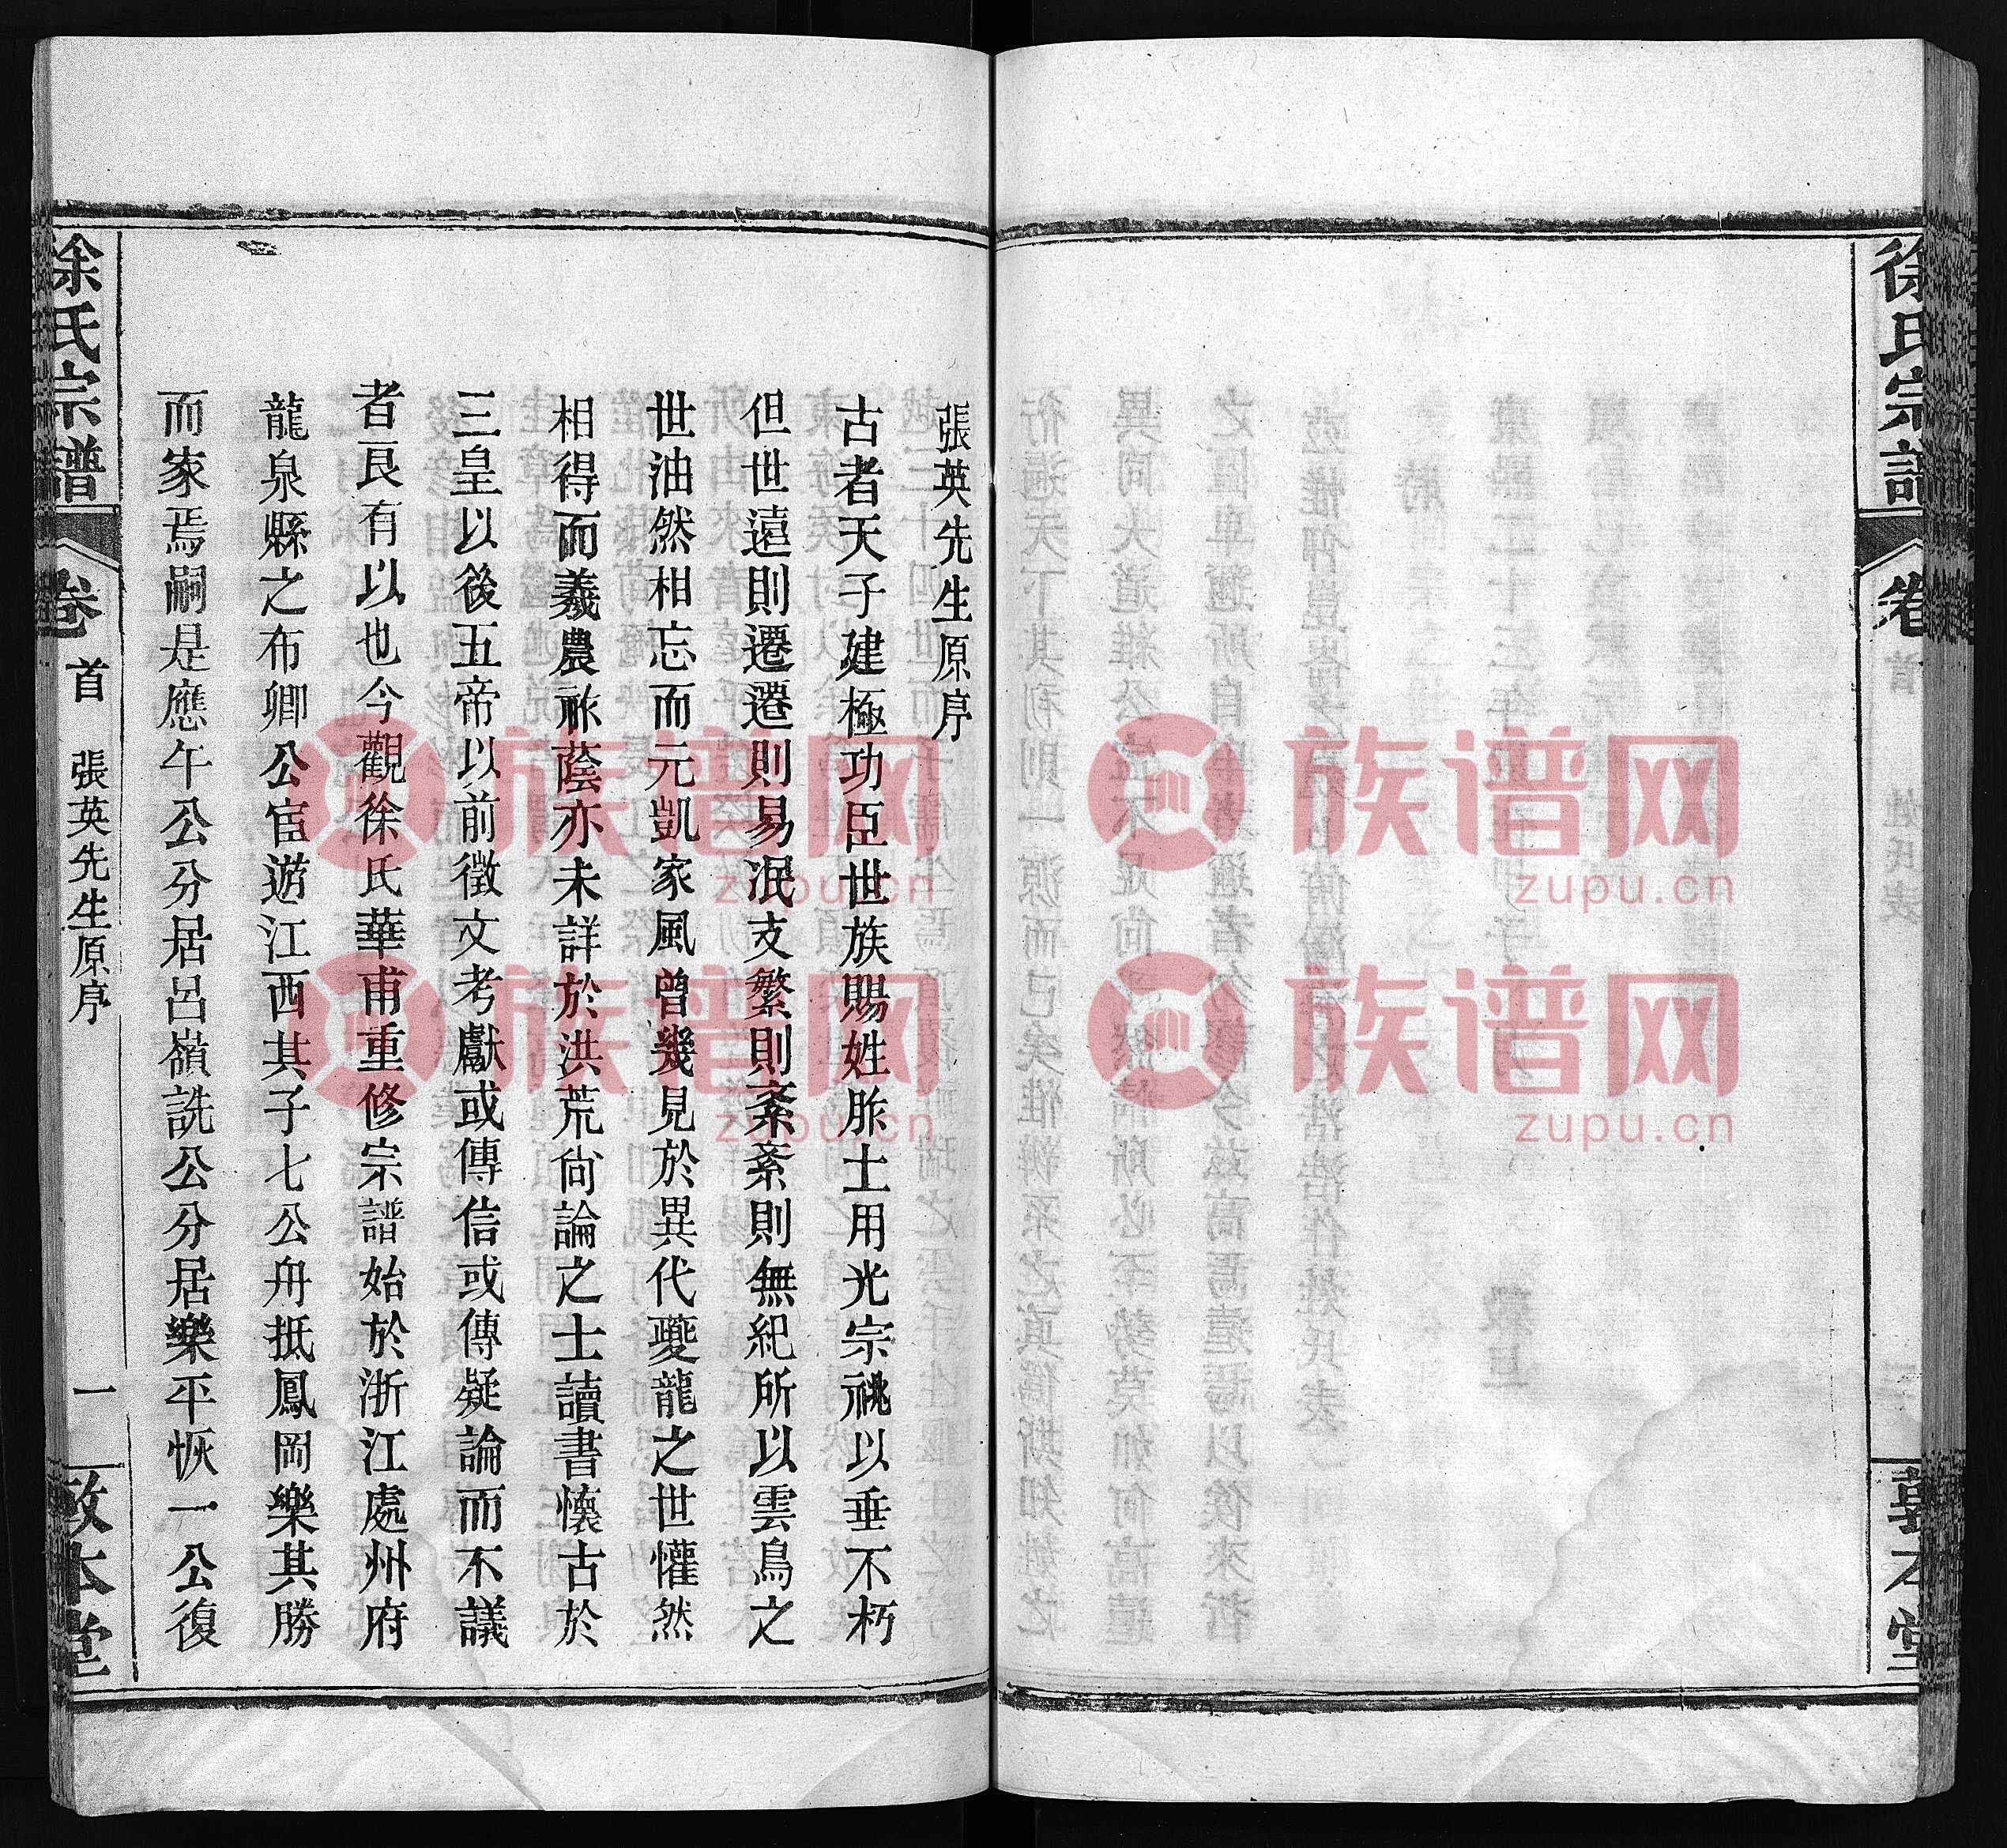 徐氏宗譜
卷
首
姓氏表
敦本堂
張英先生原序
古者天子建極功臣世族賜姓胙土用光宗祧以垂不朽
但世遠則遷遷則易泯支繁則紊紊則無紀所以雲鳥之
世油然相忘而元凱家風曾幾見於異代夔龍之世懽然
相得而羲農祚蔭亦未詳於洪荒尙論之士讀書懷古於
三皇以後五帝以前徵文考獻或傳信或傳疑論而不議
者艮有以也今觀徐氏華甫重修宗譜始於浙江處州府
龍泉縣之布卿公宦遊江西其子七公舟抵鳳岡樂其勝
而家焉嗣是應午公分居呂嶺詵公分居樂平恢一公復
徐氏宗譜
卷
首
張英先生原序
一
敦本堂
族谱网
zupu.cn
族谱网
zupu.cn
族谱网
zupu.cn
族谱网
zupu.cn